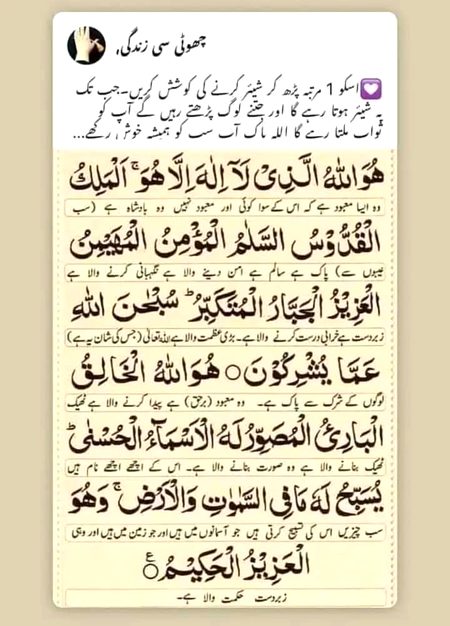 چھوٹی سی زندگی,
💜اسکو 1 مرتبہ پڑھ کر شیئر کرنے کی کوشش کریں۔جب تک
یہ شیئر ہوتا رہے گا اور جتنے لوگ پڑھتے رہیں گے آپ کو
ثواب ملتا رہے گا اللہ پاک آپ سب کو ہمیشہ خوش رکھے...
هُوَ اللهُ الَّذِىْ لَآ اِلٰهَ اِلَّا هُوَ ۚ اَلْمَلِكُ
وہ ایسا معبود ہے کہ اس کے سوا کوئی اور معبود نہیں وہ بادشاہ ہے (سب
الْقُدُّوْسُ السَّلٰمُ الْمُؤْمِنُ الْمُهَيْمِنُ
عیبوں سے) پاک ہے سالم ہے امن دینے والا ہے نگہبانی کرنے والا ہے
الْعَزِيْزُ الْجَبَّارُ الْمُتَكَبِّرُ ؕ سُبْحٰنَ اللهِ
زبردست ہے خرابی درست کرنے والا ہے۔ بڑی عظمت والا ہے اللہ تعالیٰ (جس کی شان یہ ہے)
عَمَّا يُشْرِكُوْنَ ○ هُوَ اللهُ الْخَالِقُ
لوگوں کے شرک سے پاک ہے۔ وہ معبود (برحق) ہے پیدا کرنے والا ہے ٹھیک
الْبَارِئُ الْمُصَوِّرُ لَهُ الْاَسْمَآءُ الْحُسْنٰى ؕ
ٹھیک بنانے والا ہے وہ صورت بنانے والا ہے۔ اس کے اچھے اچھے نام ہیں
يُسَبِّحُ لَهٗ مَا فِى السَّمٰوٰتِ وَالْاَرْضِ ۚ وَهُوَ
سب چیزیں اس کی تسبیح کرتی ہیں جو آسمانوں میں ہیں اور جو زمین میں ہیں اور وہی
الْعَزِيْزُ الْحَكِيْمُ ○ ع
زبردست حکمت والا ہے۔